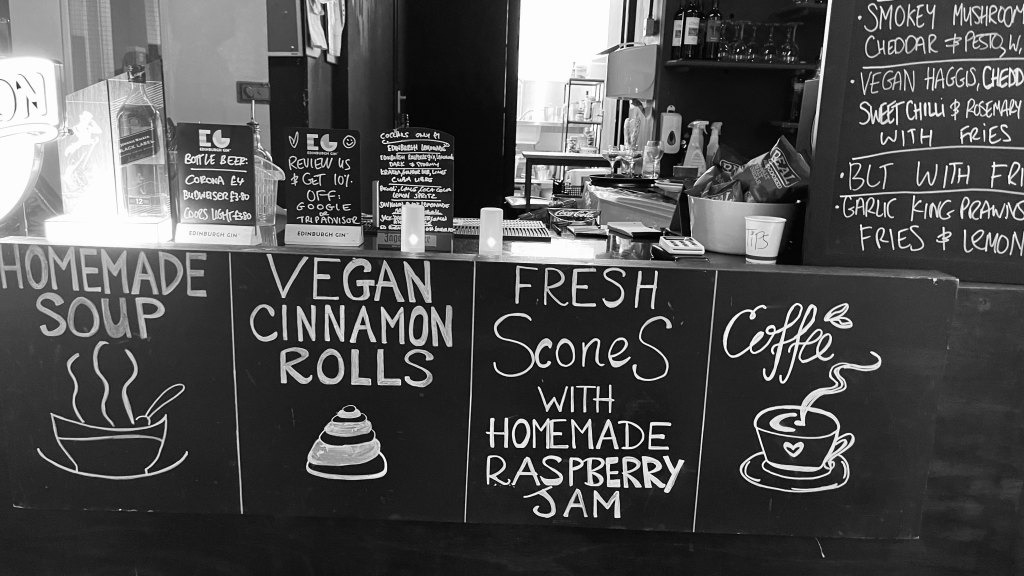 HOMEMADE
SOUP
VEGAN
CINNAMON
ROLLS
FRESH
SCONES
WITH
HOMEMADE
RASPBERRY
JAM
Coffee
EG
BOTTLE BEER:
CORONA £4
BUDWEISER £3.80
COORS LIGHT £3.80
EDINBURGH GIN
EG
REVIEW US
& GET 10%
OFF:
GOOGLE
OR
TRIPADVISOR
EDINBURGH GIN
EDINBURGH LEMONADE
CUBA LIBRE
TIPS
· SMOKEY MUSHROOM
CHEDDAR & PESTO, W,
· VEGAN HAGGIS, CHEDD
SWEET CHILLI & ROSEMARY
WITH FRIES
· BLT WITH FRI
· GARLIC KING PRAWNS
FRIES & LEMON